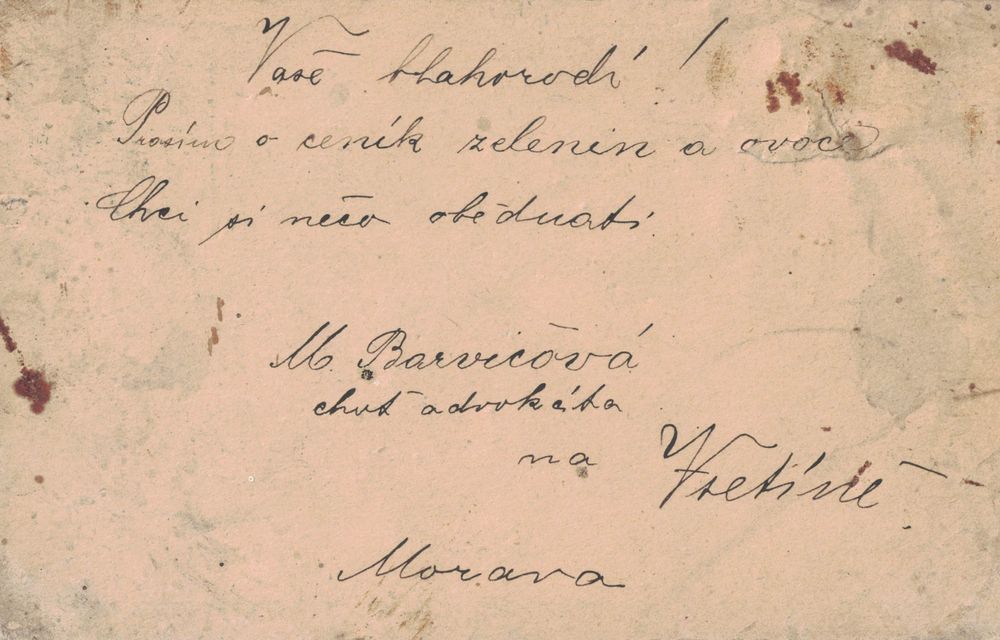 Vaše blahorodí!
Prosím o ceník zelenin a ovoce
Chci si něčo obědnati.
M. Barvičová
choť advokáta
na Vsetíně.
Morava